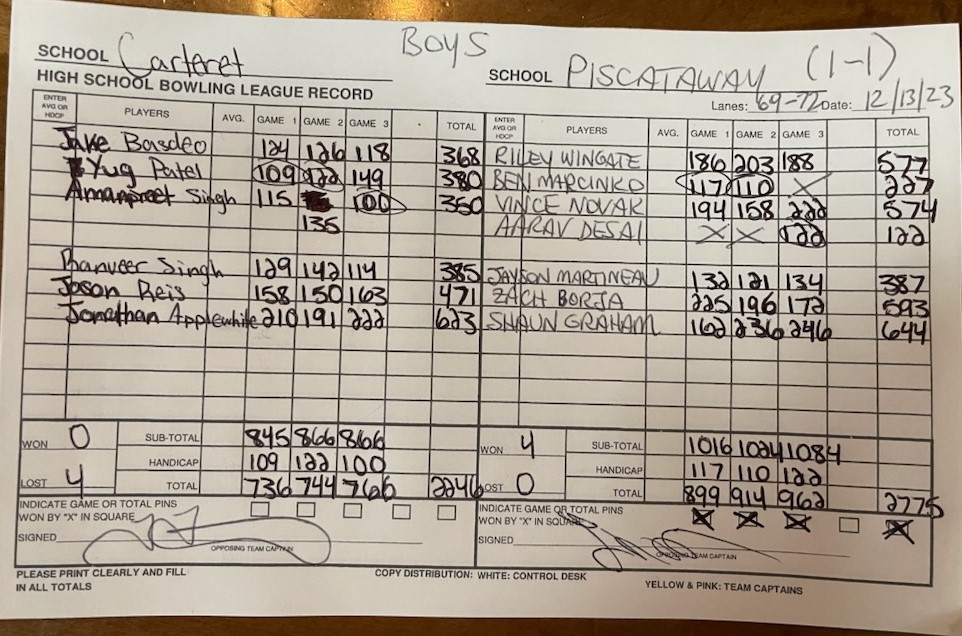 BOYS
SCHOOL Carteret SCHOOL PISCATAWAY (1-1)
HIGH SCHOOL BOWLING LEAGUE RECORD Lanes: 69-72 Date: 12/13/23
ENTER AVG OR HDCP PLAYERS AVG. GAME 1 GAME 2 GAME 3 TOTAL ENTER AVG OR HDCP PLAYERS AVG. GAME 1 GAME 2 GAME 3 TOTAL
Jake Basdeo 124 126 118 368 RILEY WINGATE 186 203 188 577
Yug Patel 109 122 149 380 BEN MARCINKO 117 110 X 227
Amanpreet Singh 115 100 350 VINCE NOVAK 194 158 222 574
135 AARAV DESAI X X 122 122
Ranveer Singh 129 142 114 385 JAYSON MARTINEAU 132 121 134 387
Jason Reis 158 150 163 471 ZACH BORJA 225 196 172 593
Jonathan Applewhite 210 191 222 623 SHAUN GRAHAM 162 236 246 644
WON 0 SUB-TOTAL 845 866 866 WON 4 SUB-TOTAL 1016 1024 1084
HANDICAP 109 122 100 HANDICAP 117 110 122
LOST 4 TOTAL 736 744 766 2246 LOST 0 TOTAL 899 914 962 2775
INDICATE GAME OR TOTAL PINS INDICATE GAME OR TOTAL PINS
WON BY "X" IN SQUARE WON BY "X" IN SQUARE X X X X
SIGNED SIGNED
OPPOSING TEAM CAPTAIN OPPOSING TEAM CAPTAIN
PLEASE PRINT CLEARLY AND FILL COPY DISTRIBUTION: WHITE: CONTROL DESK YELLOW & PINK: TEAM CAPTAINS
IN ALL TOTALS